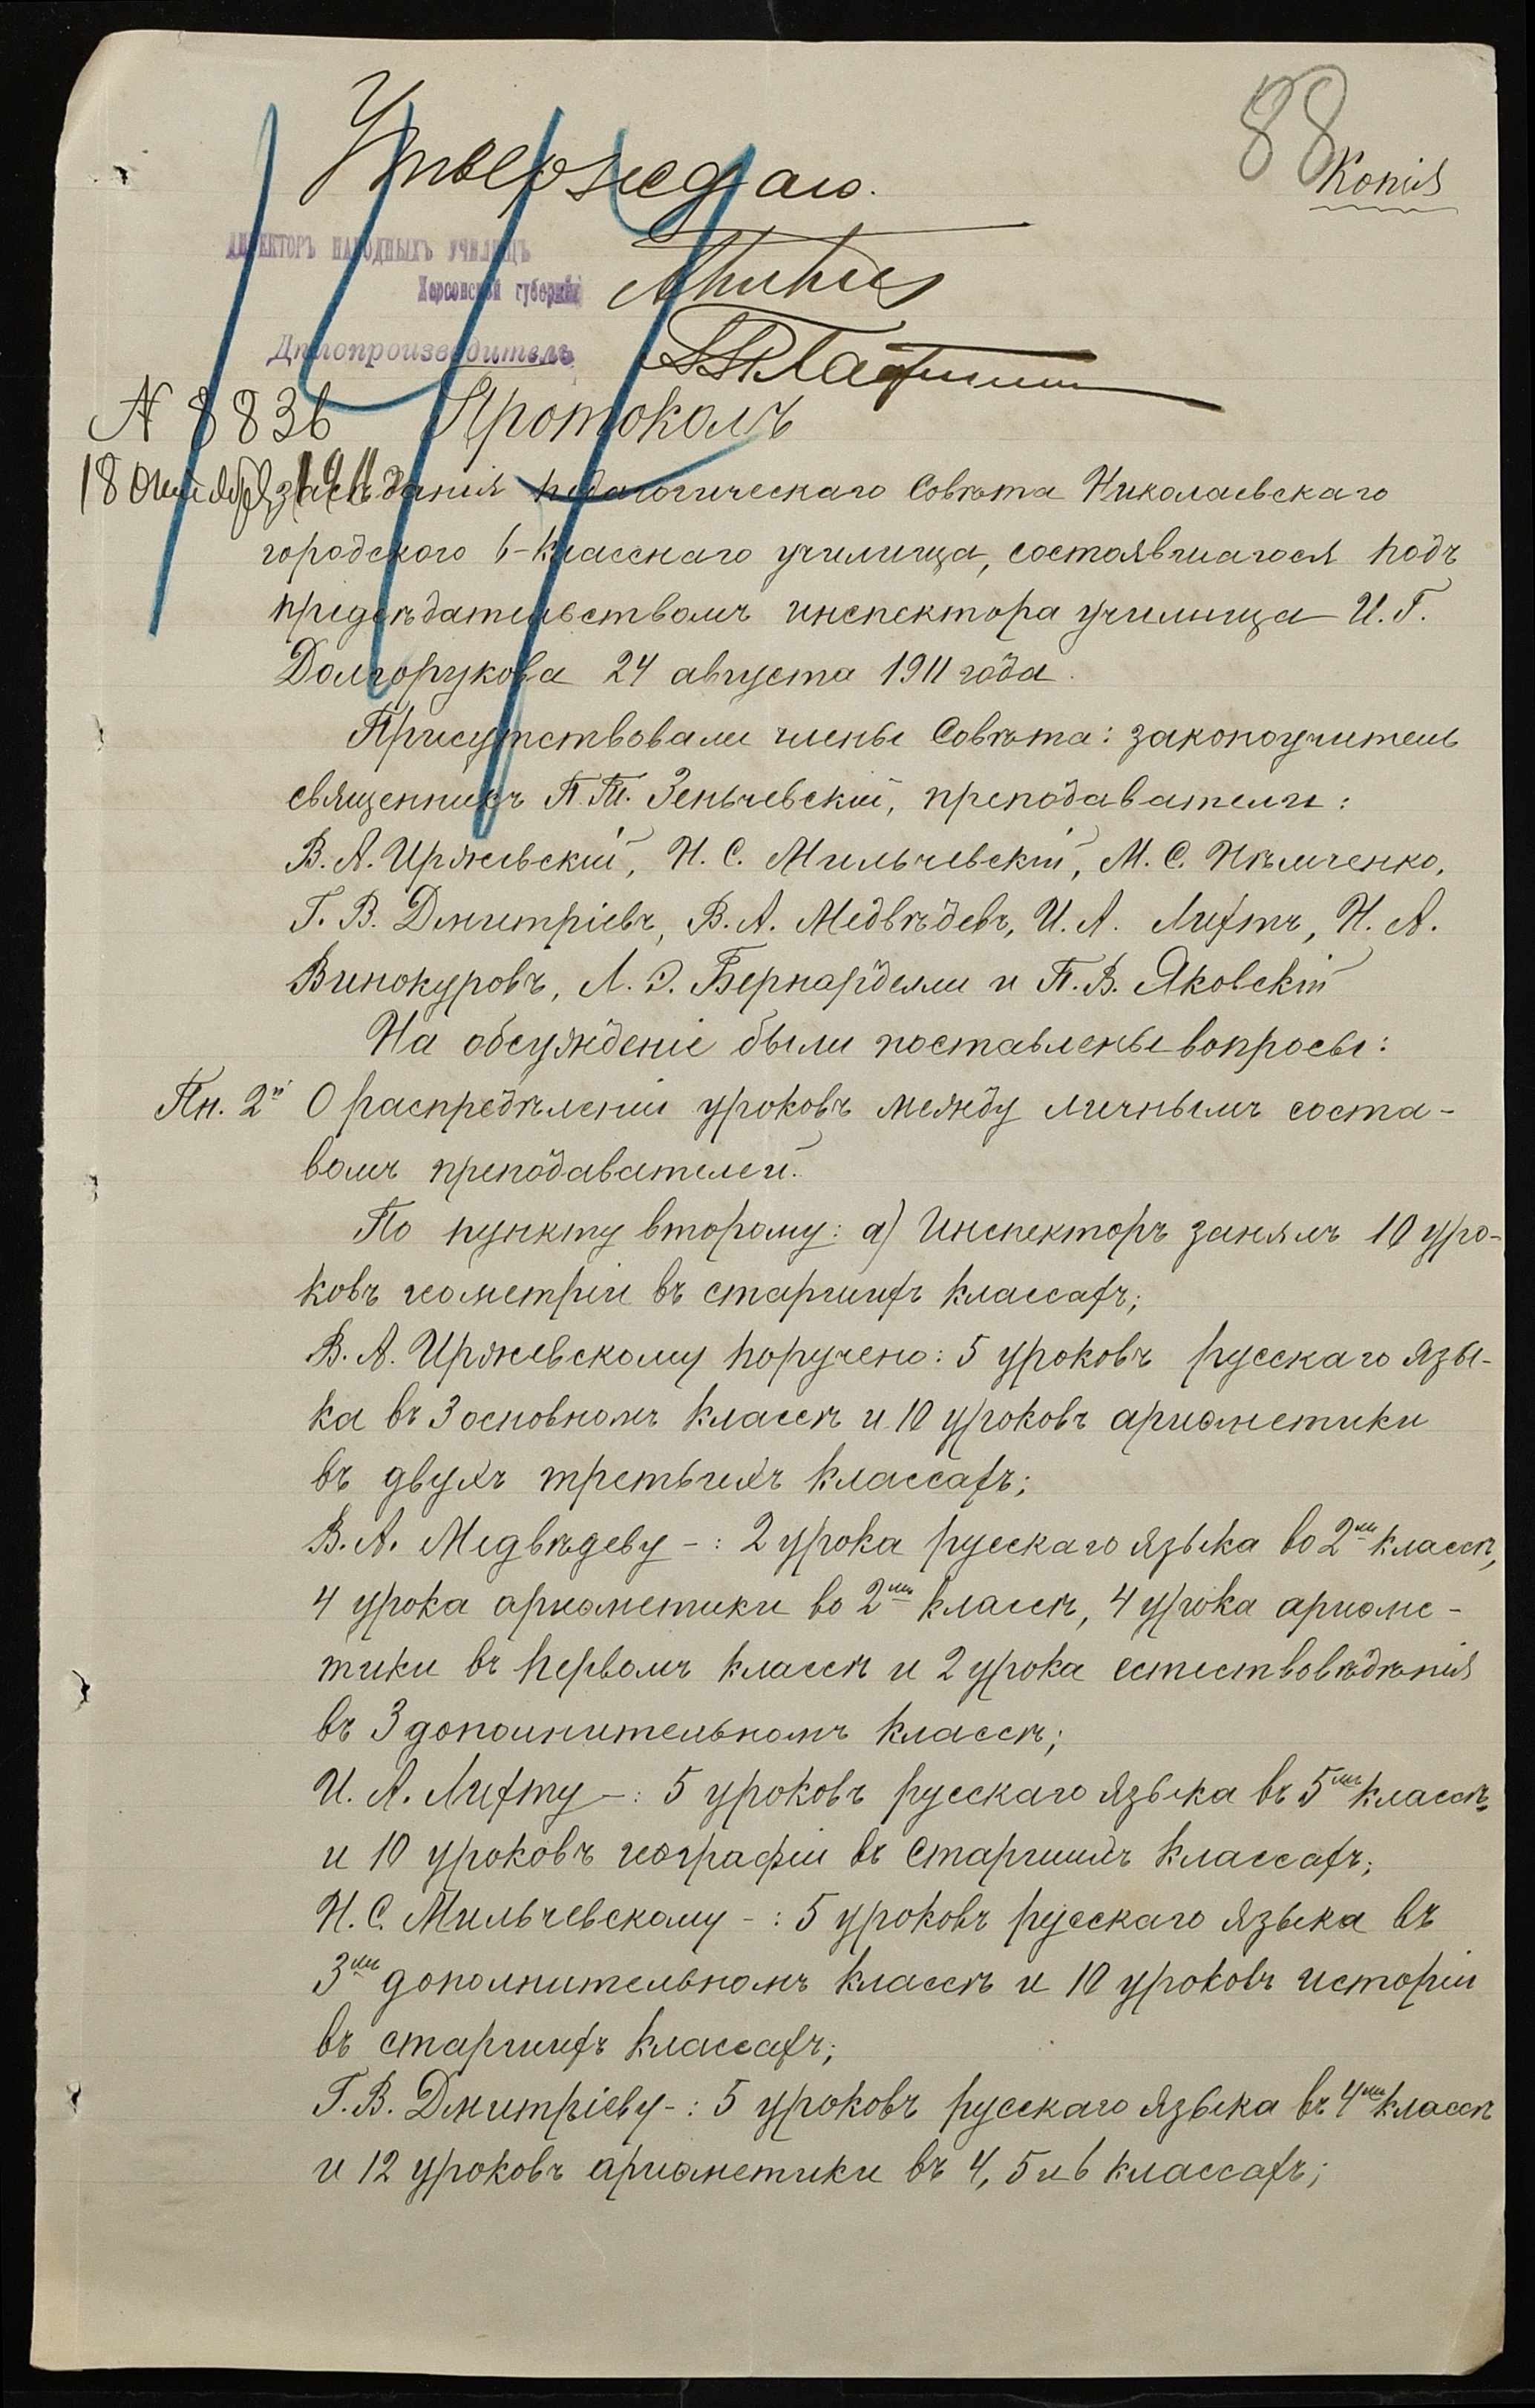 88
Копія
Утверждаю.
ДИРЕКТОРЪ НАРОДНЫХЪ УЧИЛИЩЪ
Херсонской губерніи
Дѣлопроизводитель
N 8836 Протоколъ
18 октября 1911
засѣданія педагогическаго Совѣта Николаевскаго
городского 6-класснаго училища, состоявшагося подъ
предсѣдательствомъ инспектора училища И. Г.
Долгорукова 24 августа 1911 года.
Присутствовали члены Совѣта: законоучитель
священникъ П. Т. Зеньчевскій, преподаватели:
В. А. Иржевскій, Н. С. Мильчевскій, М. С. Нѣмченко,
Г. В. Дмитріевъ, В. А. Медвѣдевъ, И. А. Лифтъ, Н. А.
Винокуровъ, Л. Э. Бернарделли и П. В. Яковскій
На обсужденіе были поставлены вопросы:
Пн. 2й О распредѣленіи уроковъ между личнымъ соста-
вомъ преподавателей.
По пункту второму: а) Инспекторъ занялъ 10 уро-
ковъ геометріи въ старшихъ классахъ;
В. А. Иржевскому поручено: 5 уроковъ русскаго язы-
ка въ 3 основномъ классѣ и 10 уроковъ ариѳметики
въ двухъ третьихъ классахъ;
В. А. Медвѣдеву -: 2 урока русскаго языка во 2мъ классѣ,
4 урока ариѳметики во 2мъ классѣ, 4 урока ариѳме-
тики въ первомъ классѣ и 2 урока естествовѣдѣнія
въ 3 дополнительномъ классѣ;
И. А. Лифту -: 5 уроковъ русскаго языка въ 5мъ классѣ
и 10 уроковъ географіи въ старшихъ классахъ;
Н. С. Мильчевскому -: 5 уроковъ русскаго языка въ
3мъ дополнительномъ классѣ и 10 уроковъ исторіи
въ старшихъ классахъ;
Г. В. Дмитріеву -: 5 уроковъ русскаго языка въ 4мъ классѣ
и 12 уроковъ ариѳметики въ 4, 5 и 6 классахъ;